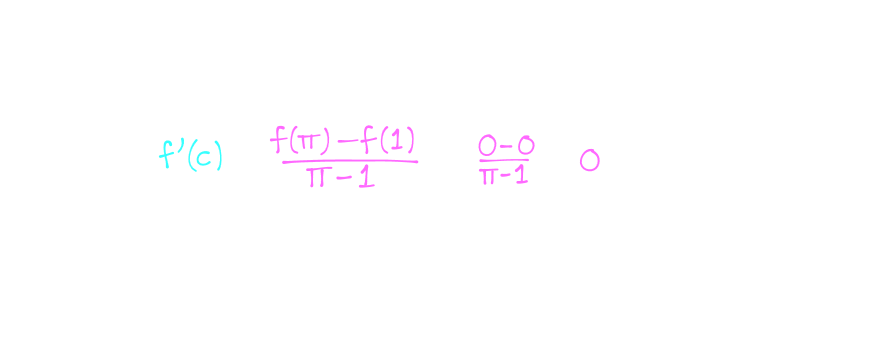 f'(c) \frac{f(π)-f(1)}{π-1} \frac{0-0}{π-1} 0